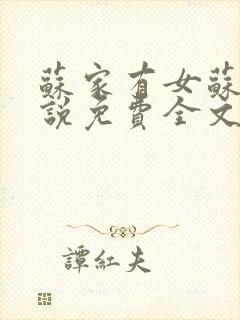 蘇家有女蘇
說免費全文
譚紅夫